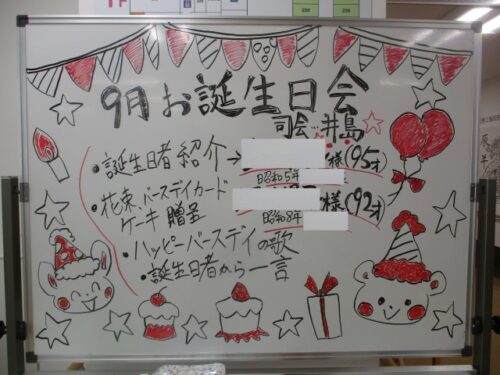 9月お誕生日会
司会…井島
・誕生者紹介→ 様(95才)
昭和5年
・花束、バースデイカード 様(92才)
ケーキ贈呈 昭和8年
・ハッピーバースデイの歌
・誕生者から一言